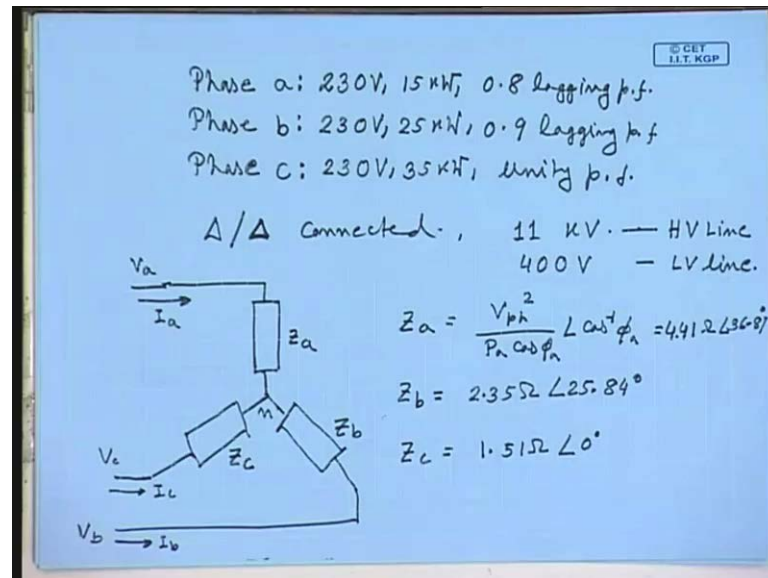 © CET
I.I.T. KGP
Phase a: 230V, 15 KW, 0.8 lagging p.f.
Phase b: 230V, 25 KW, 0.9 lagging p.f
Phase c: 230V, 35 KW, Unity p.f.
Δ/Δ Connected., 11 KV. — HV Line
400V — LV line.
Va
Ia
Za
Za = Vph² / Pa cosφa ∠ cos⁻¹ φa = 4.41 Ω ∠36.87°
n
Zb
Zb = 2.35Ω ∠25.84°
Zc
Zc = 1.51Ω ∠0°
Vc
Ic
Vb
Ib